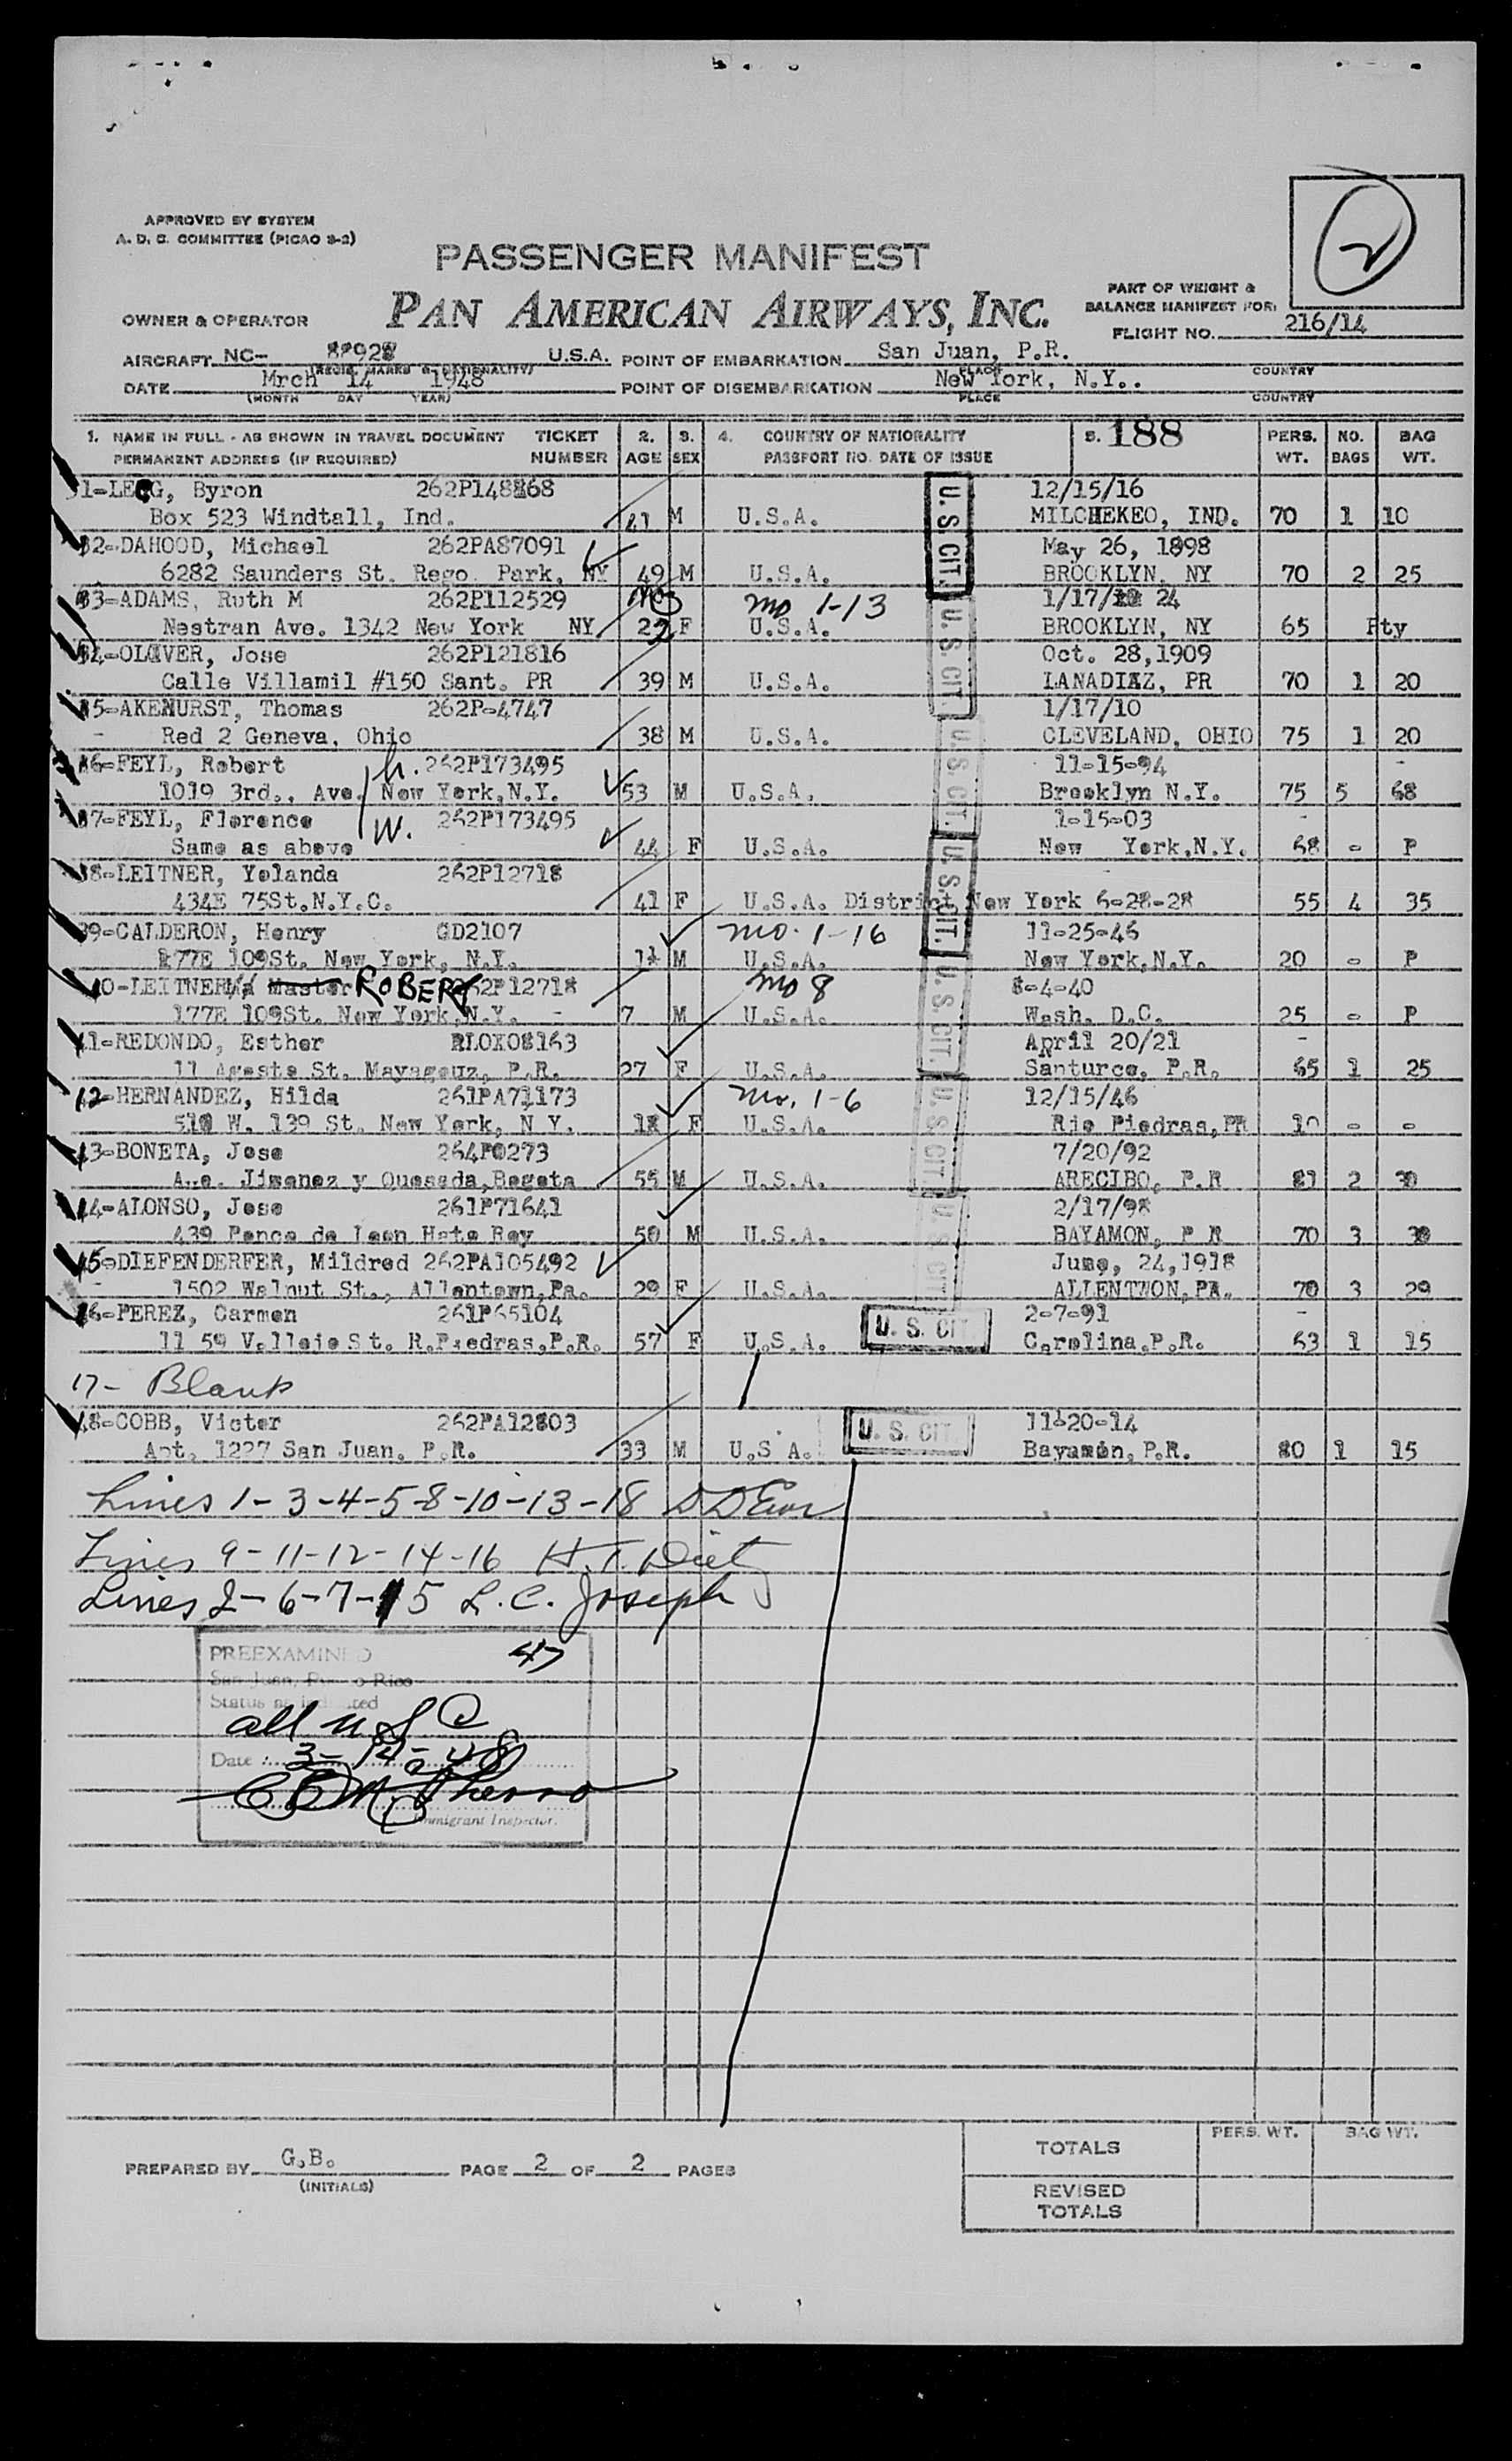 APPROVED BY SYSTEM
A. D. S. COMMITTEE (PICAO S-2)
PASSENGER MANIFEST
PAN AMERICAN AIRWAYS, INC.
2
PART OF WEIGHT &
BALANCE MANIFEST FOR:
OWNER & OPERATOR
FLIGHT NO. 216/14
AIRCRAFT NC- U.S.A. POINT OF EMBARKATION San Juan, P.R.
(REGIS. MARKS & NATIONALITY) PLACE COUNTRY
DATE Mrch 14 1948 POINT OF DISEMBARKATION New York, N.Y..
(MONTH DAY YEAR) PLACE COUNTRY
1. NAME IN FULL - AS SHOWN IN TRAVEL DOCUMENT TICKET 2. 3. 4. COUNTRY OF NATIONALITY 5. 188 PERS. NO. BAG
PERMANENT ADDRESS (IF REQUIRED) NUMBER AGE SEX PASSPORT NO. DATE OF ISSUE WT. BAGS WT.
Byron 12/15/16
Box 523 Windtall, Ind. 41 M U.S.A. U. S. CIT. MILCHEKEO, IND. 70 1 10
DAHOOD, Michael 262PA87091 May 26, 1898
6282 Saunders St. Rego Park, NY 49 M U.S.A. BROOKLYN, NY 70 2 25
ADAMS, Ruth M 262P112529 mo 1-13 1/17/ 24
Nestran Ave. 1342 New York NY F U.S.A. U. S. CIT. BROOKLYN, NY 65 Pty
OLIVER, Jose 262P121816 Oct. 28,1909
Calle Villamil #150 Sant. PR 39 M U.S.A. PR 70 1 20
AKENURST, Thomas 262P-4747 1/17/10
Red 2 Geneva, Ohio 38 M U.S.A. U. S. CIT. CLEVELAND, OHIO 75 1 20
FEYL, Robert h. 262P173495 11-15-94
1019 3rd., Ave. New York,N.Y. 53 M U.S.A. Brooklyn N.Y. 75 5 68
FEYL, Florence W. 262P173495 1-15-03
Same as above 44 F U.S.A. New York,N.Y. 68 - P
LEITNER, Yolanda 262P12718
434E 75St.N.Y.C. 41 F U.S.A. District New York 6-28-28 55 4 35
U. S. CIT.
CALDERON, Henry GD2107 mo. 1-16 11-25-46
177E 109St. New York, N.Y. M U.S.A. New York,N.Y. 20 - P
LEITNER Master ROBERT 262P12718 mo 8 8-4-40
177E 109St. New York,N.Y. - 7 M U.S.A. U. S. CIT. Wash. D.C. 25 - P
REDONDO, Esther April 20/21
St. Mayaguez, P.R. 27 F U.S.A. Santurce, P.R. 65 1 25
12-HERNANDEZ, Hilda 261PA71173 mo. 1-6 12/15/46
510 W. 139 St. New York, N Y. F U.S.A. U. S. CIT. Rio Piedras,PR 10 - -
BONETA, Jose 264P0273 7/20/92
Ave. Jimenez y Quesada,Bogota 55 M U.S.A. ARECIBO, P.R 81 2 30
ALONSO, Jose 261P71641 2/17/98
439 Ponce de Leon Hato Rey 50 M U.S.A. U. S. CIT BAYAMON, P R 70 3 30
DIEFENDERFER, Mildred 262PA105492 June, 24,1918
1502 Walnut St., Allentown,Pa. 29 F U.S.A. ALLENTWON,PA. 70 3 29
PEREZ, Carmen 261P65104 2-7-91
11 59 Vallejo St. R.Piedras,P.R. 57 F U.S.A. U. S. CIT. Carolina,P.R. 63 1 15
17- Blank
COBB, Victor 262PA12803 11-20-14
Apt. 1227 San Juan, P.R. 33 M U.S A. U. S. CIT. Bayamon, P.R. 80 1 15
Lines 1-3-4-5-8-10-13-18
Lines 9-11-12-14-16 H.T. Dietz
Lines 2-6-7-15 L. C. Joseph
PREEXAMINED 47
San Juan, Puerto Rico
Status as indicated
all U S C
Date 3-14-48
Immigrant Inspector.
PREPARED BY G.B. PAGE 2 OF 2 PAGES
(INITIALS)
PERS. WT. BAG WT.
TOTALS
REVISED
TOTALS